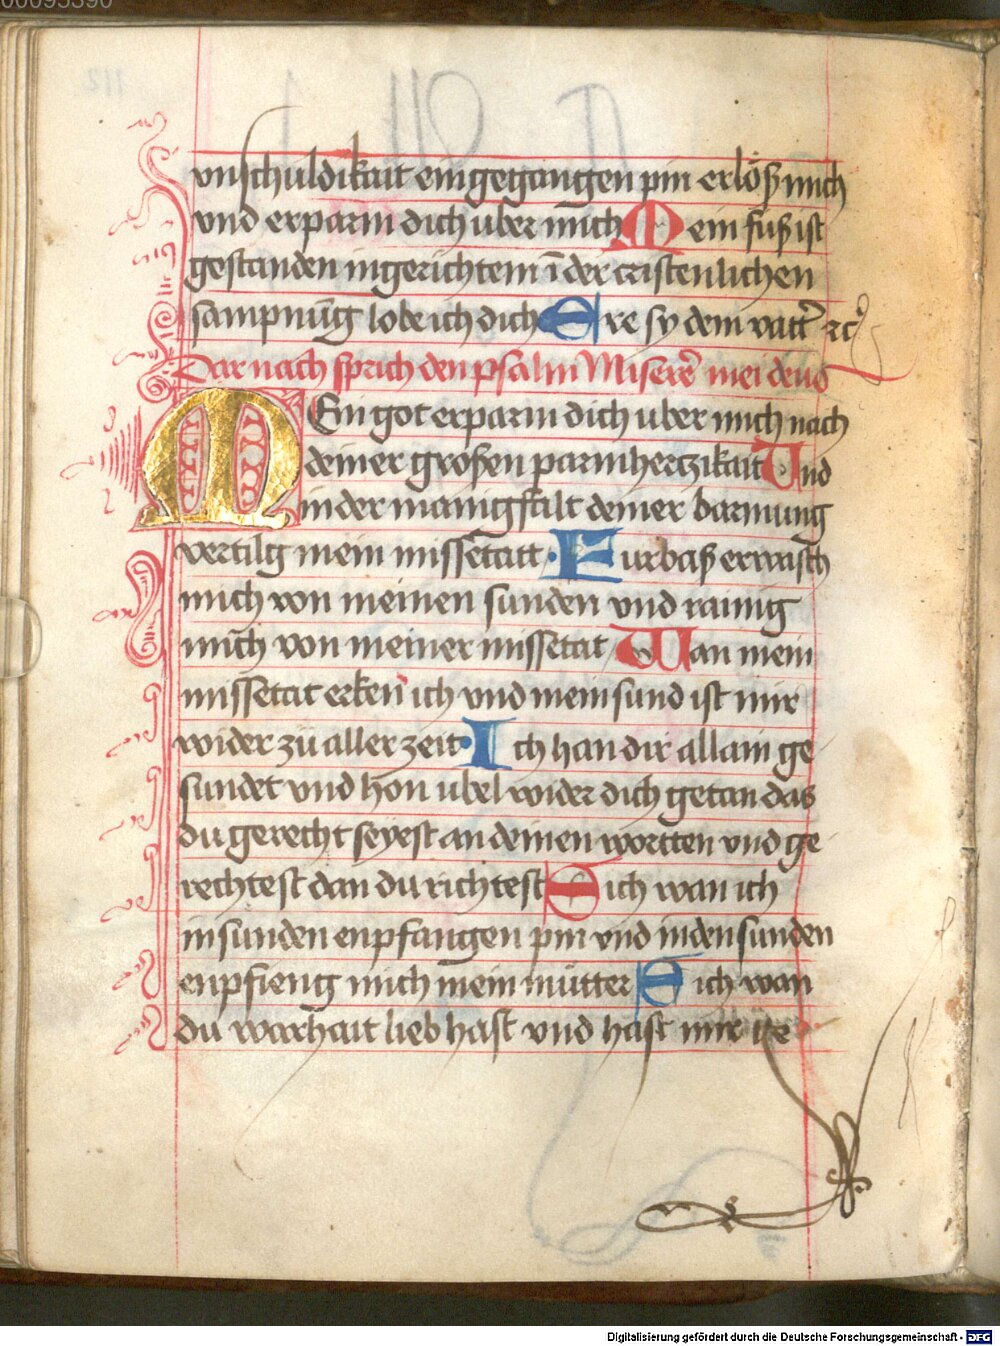 00095390
vnschuldikait eingegangen pin erlöß mich
vnd erparm dich uber mich Mein fuß ist
gestanden ingerichtem ī der cristenlichen
sampnūg lobe ich dich Ere sy dem vatt̄ ꝛc
Dar nach sprich den psalm Miserē mei deus
MEin got erparm dich uber mich nach
deiner großen parmhertzikait Und
in der manigfalt deiner barmung
vertilg mein missetatt · Furbaß erwasch
mich von meinen sunden vnd rainig
mich von meiner missetat Wan mein
missetat erken ich vnd mein sund ist mir
wider zu aller zeit · Ich han dir allain ge
sundet vnd hon ubel wider dich getan das
du gerecht seyest an deinen wortten vnd ge
rechtest dan du richtest Sich wan ich
in sunden enpfangen pin vnd in den sunden
enpfieng mich mein mütter Sich wan
du warhait lieb hast vnd hast mir ge
Digitalisierung gefördert durch die Deutsche Forschungsgemeinschaft - DFG